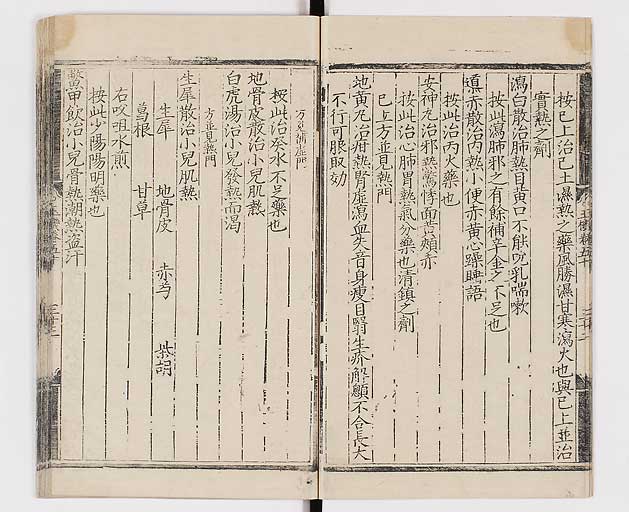 按已上治己土濕熱之藥風勝濕甘寒瀉火也與已上並治
實熱之劑
瀉白散治肺熱目黃口不能吮乳喘嗽
按此瀉肺邪之有餘補辛金之不足也
導赤散治內熱小便赤黃心躁睡語
按此治丙火藥也
安神丸治邪熱驚悸面青頰赤
按此治心肺胃熱氣分藥也清鎮之劑
已上方並見熱門
地黃丸治疳熱腎虛瀉血失音身瘦目翳生瘡解顱不合長大
不行可服取効
方見補虛門
按此治癸水不足藥也
地骨皮散治小兒肌熱
白虎湯治小兒發熱而渴
方並見熱門
生犀散治小兒肌熱
生犀 地骨皮 赤芍 柴胡
葛根 甘草
右㕮咀水煎
按此少陽陽明藥也
鱉甲飲治小兒骨熱潮熱盜汗